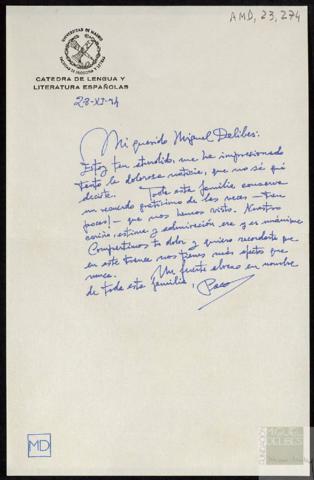 AMD, 23, 274
UNIVERSIDAD DE MADRID
FACULTAD DE FILOSOFIA Y LETRAS
CATEDRA DE LENGUA Y
LITERATURA ESPAÑOLAS
23-XI-74
Mi querido Miguel Delibes:
Estoy tan aturdido, me ha impresionado
tanto la dolorosa noticia, que no sé qué
decirte. Toda esta familia conserva
un recuerdo gratísimo de las veces —tan
pocas— que nos hemos visto. Nuestro
cariño, estima y admiración era y es unánime.
Compartimos tu dolor y quiero recordarte que
en este trance nos tienes más afectos que
nunca. Un fuerte abrazo en nombre
de toda esta familia, Paco
MD
FUNDACIÓN
MIGUEL
DELIBES